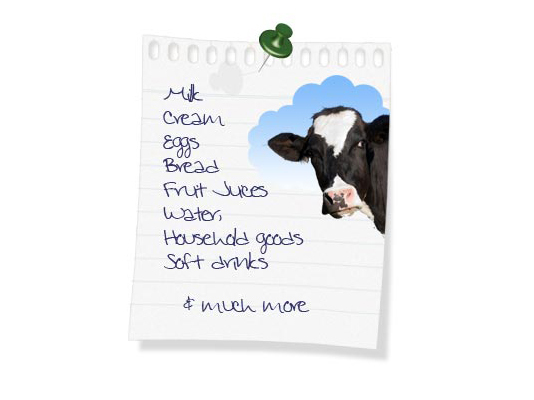 Milk
Cream
Eggs
Bread
Fruit Juices
Water,
Household goods
Soft drinks
& much more